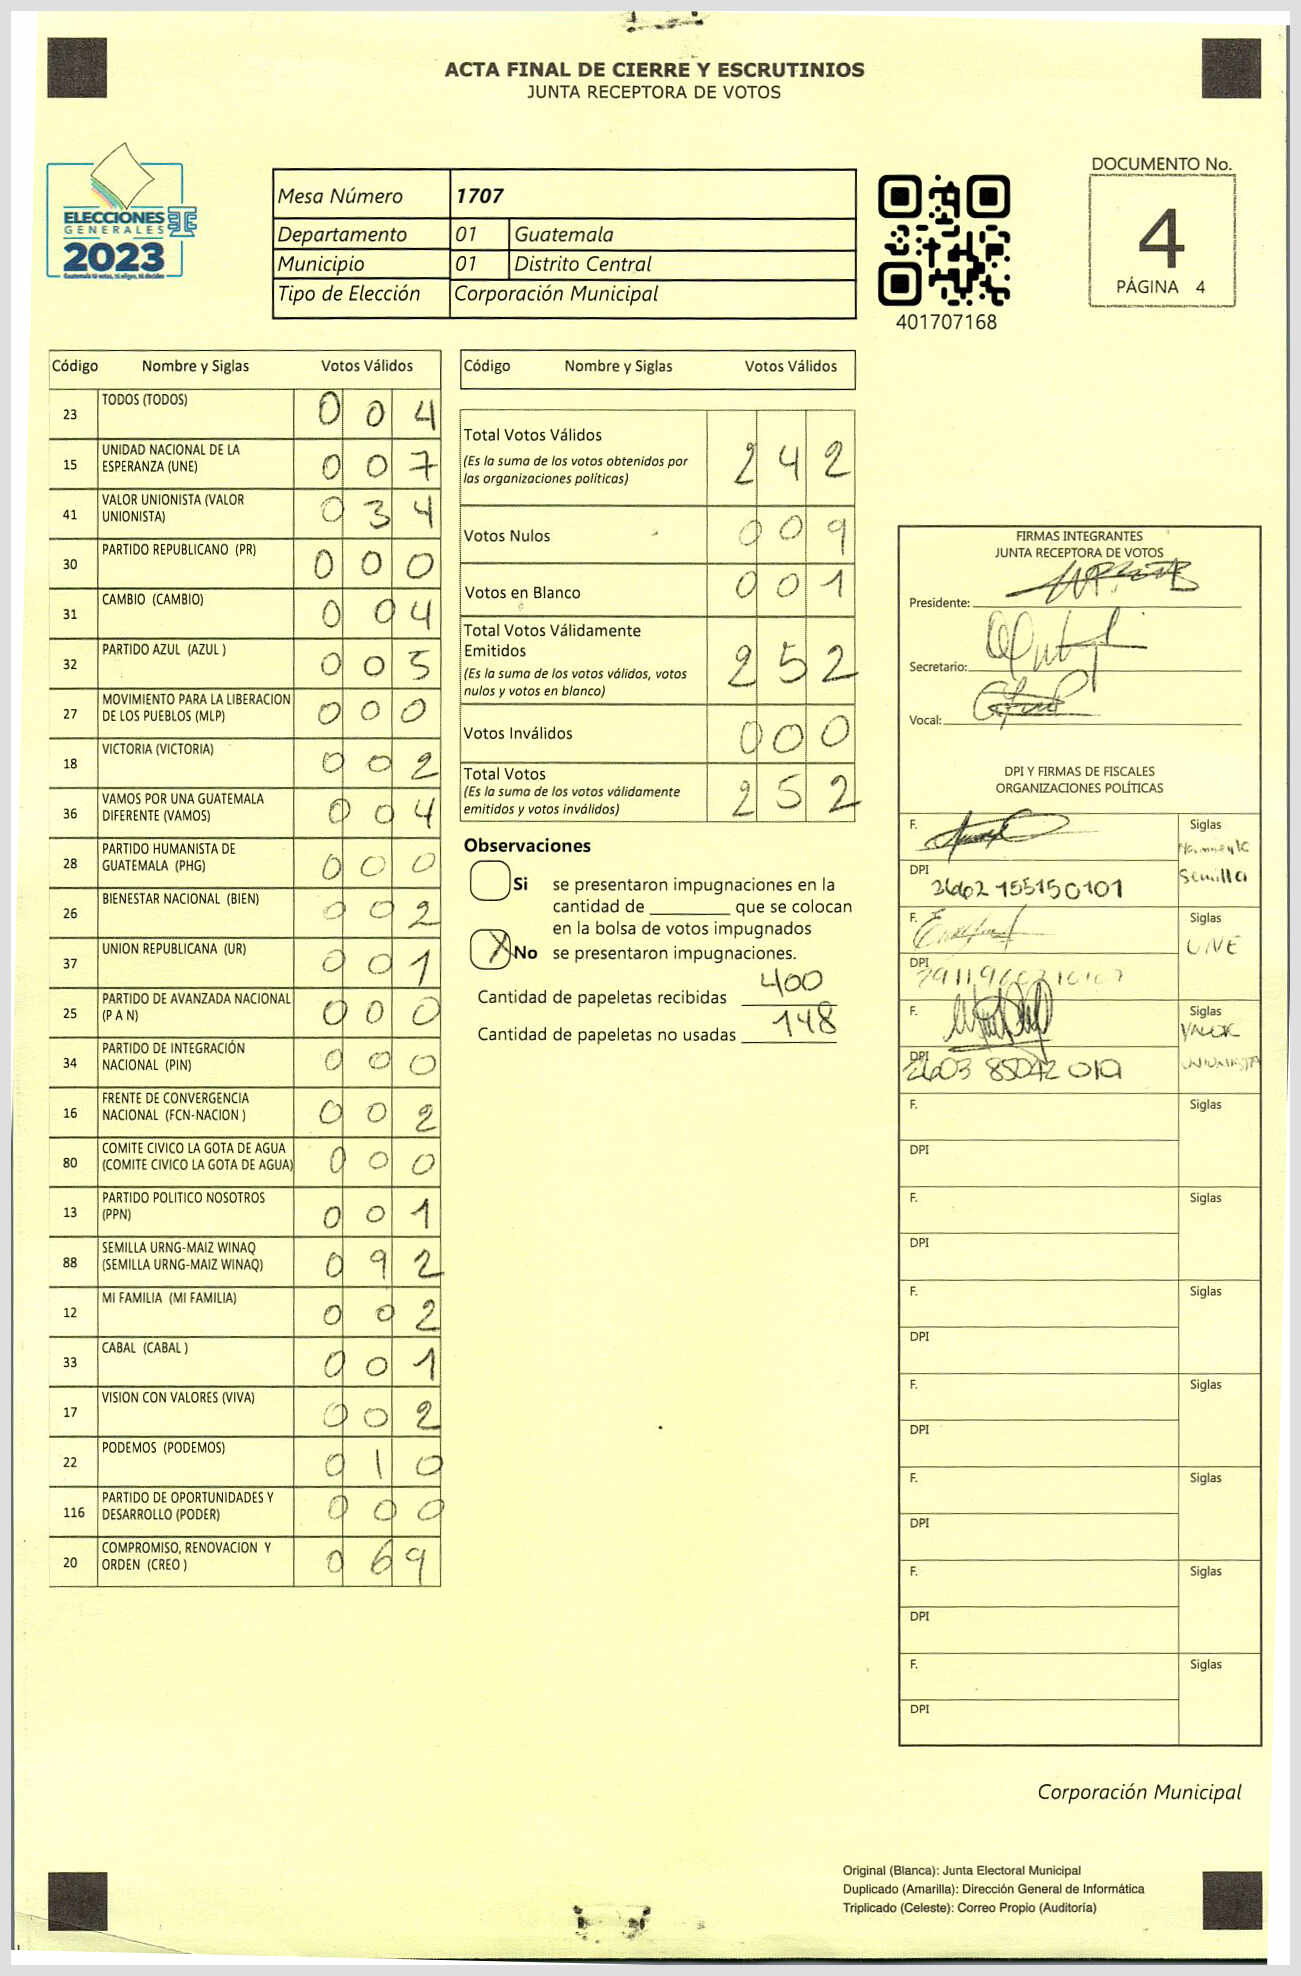 ACTA FINAL DE CIERRE Y ESCRUTINIOS
JUNTA RECEPTORA DE VOTOS
ELECCIONES
GENERALES
2023
Guatemala tú votas, tú eliges, tú decides
Mesa Número 1707
Departamento 01 Guatemala
Municipio 01 Distrito Central
Tipo de Elección Corporación Municipal
401707168
DOCUMENTO No.
4
PÁGINA 4
Código Nombre y Siglas Votos Válidos
23 TODOS (TODOS) 0 0 4
15 UNIDAD NACIONAL DE LA
ESPERANZA (UNE) 0 0 7
41 VALOR UNIONISTA (VALOR
UNIONISTA) 0 3 4
30 PARTIDO REPUBLICANO (PR) 0 0 0
31 CAMBIO (CAMBIO) 0 0 4
32 PARTIDO AZUL (AZUL ) 0 0 5
27 MOVIMIENTO PARA LA LIBERACION
DE LOS PUEBLOS (MLP) 0 0 0
18 VICTORIA (VICTORIA) 0 0 2
36 VAMOS POR UNA GUATEMALA
DIFERENTE (VAMOS) 0 0 4
28 PARTIDO HUMANISTA DE
GUATEMALA (PHG) 0 0 0
26 BIENESTAR NACIONAL (BIEN) 0 0 2
37 UNION REPUBLICANA (UR) 0 0 1
25 PARTIDO DE AVANZADA NACIONAL
(P A N) 0 0 0
34 PARTIDO DE INTEGRACIÓN
NACIONAL (PIN) 0 0 0
16 FRENTE DE CONVERGENCIA
NACIONAL (FCN-NACION ) 0 0 2
80 COMITE CIVICO LA GOTA DE AGUA
(COMITE CIVICO LA GOTA DE AGUA) 0 0 0
13 PARTIDO POLITICO NOSOTROS
(PPN) 0 0 1
88 SEMILLA URNG-MAIZ WINAQ
(SEMILLA URNG-MAIZ WINAQ) 0 9 2
12 MI FAMILIA (MI FAMILIA) 0 0 2
33 CABAL (CABAL ) 0 0 1
17 VISION CON VALORES (VIVA) 0 0 2
22 PODEMOS (PODEMOS) 0 1 0
116 PARTIDO DE OPORTUNIDADES Y
DESARROLLO (PODER) 0 0 0
20 COMPROMISO, RENOVACION Y
ORDEN (CREO ) 0 6 9
Código Nombre y Siglas Votos Válidos
Total Votos Válidos 2 4 2
(Es la suma de los votos obtenidos por
las organizaciones políticas)
Votos Nulos 0 0 9
Votos en Blanco 0 0 1
Total Votos Válidamente
Emitidos 2 5 2
(Es la suma de los votos válidos, votos
nulos y votos en blanco)
Votos Inválidos 0 0 0
Total Votos 2 5 2
(Es la suma de los votos válidamente
emitidos y votos inválidos)
Observaciones
Si se presentaron impugnaciones en la
cantidad de ________ que se colocan
en la bolsa de votos impugnados
X No se presentaron impugnaciones.
Cantidad de papeletas recibidas 400
Cantidad de papeletas no usadas 148
FIRMAS INTEGRANTES
JUNTA RECEPTORA DE VOTOS
Presidente:
Secretario:
Vocal:
DPI Y FIRMAS DE FISCALES
ORGANIZACIONES POLÍTICAS
F. Siglas
Semilla
DPI 2662 155150101
F. Siglas
UNE
DPI
F. Siglas
VALOR
UNIONISTA
DPI
F. Siglas
DPI
F. Siglas
DPI
F. Siglas
DPI
F. Siglas
DPI
F. Siglas
DPI
F. Siglas
DPI
F. Siglas
DPI
Corporación Municipal
Original (Blanca): Junta Electoral Municipal
Duplicado (Amarilla): Dirección General de Informática
Triplicado (Celeste): Correo Propio (Auditoría)